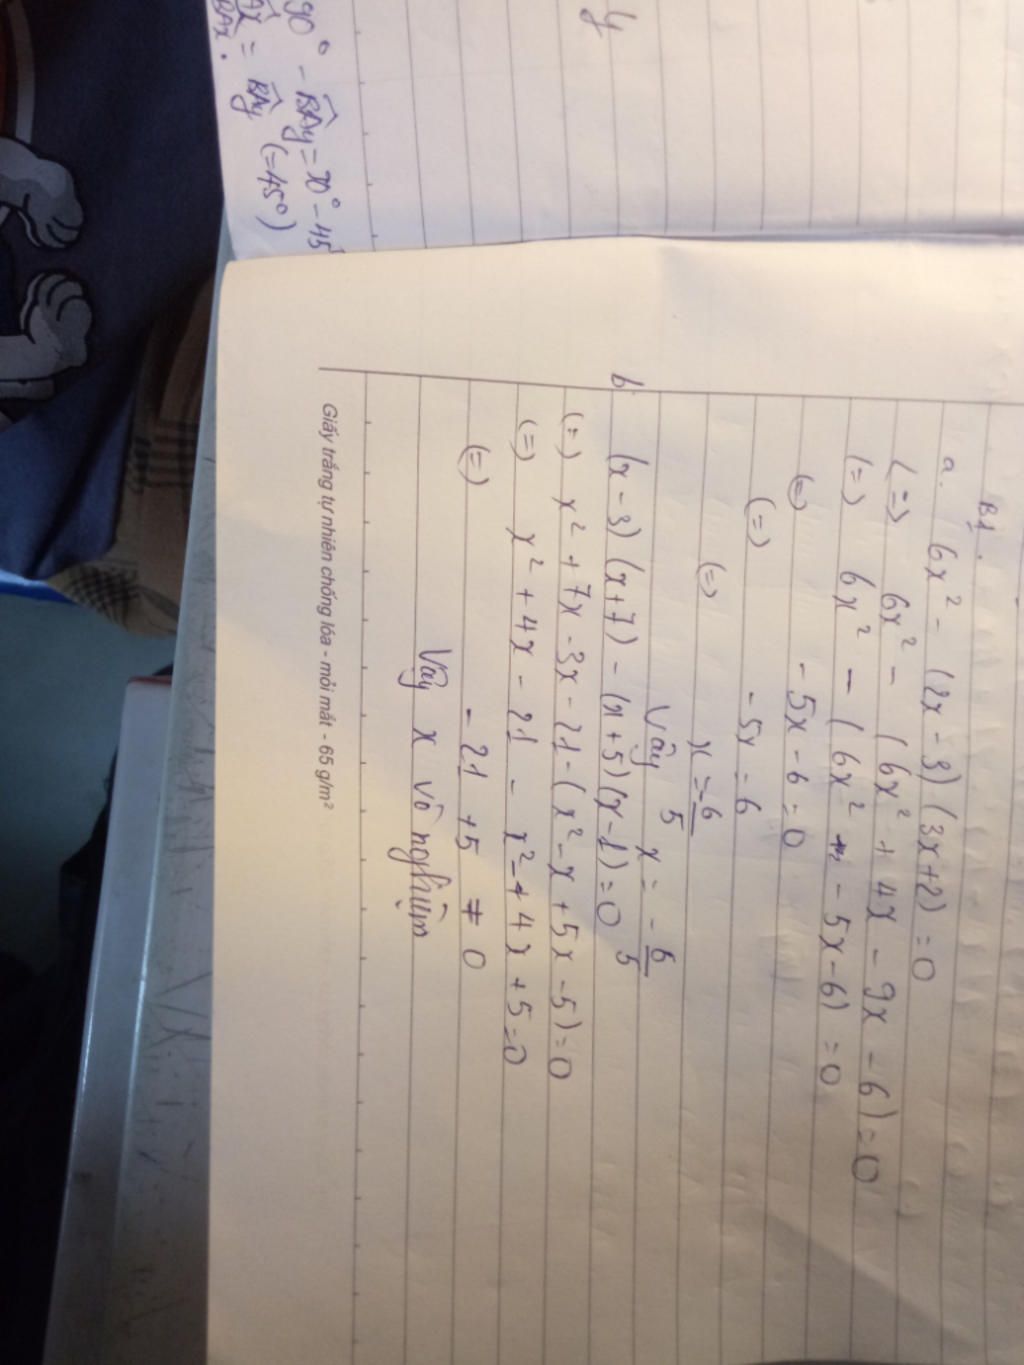 y
90° - BAy = 90° - 45°
Ax = BAy (=45°)
BAx.
B1.
a. 6x² - (2x - 3)(3x+2) = 0
<=> 6x² - (6x² + 4x - 9x - 6) = 0
(=) 6x² - (6x² - 5x - 6) = 0
(=) - 5x - 6 = 0
(=) - 5x = 6
(=) x = -6/5
Vậy x = -6/5
b (x - 3)(x+7) - (x+5)(x-1) = 0
(=) x² + 7x - 3x - 21 - (x² - x + 5x - 5) = 0
(=) x² + 4x - 21 - x² - 4x + 5 = 0
(=) - 21 + 5 ≠ 0
Vậy x vô nghiệm
Giấy trắng tự nhiên chống lóa - mỏi mắt - 65 g/m²